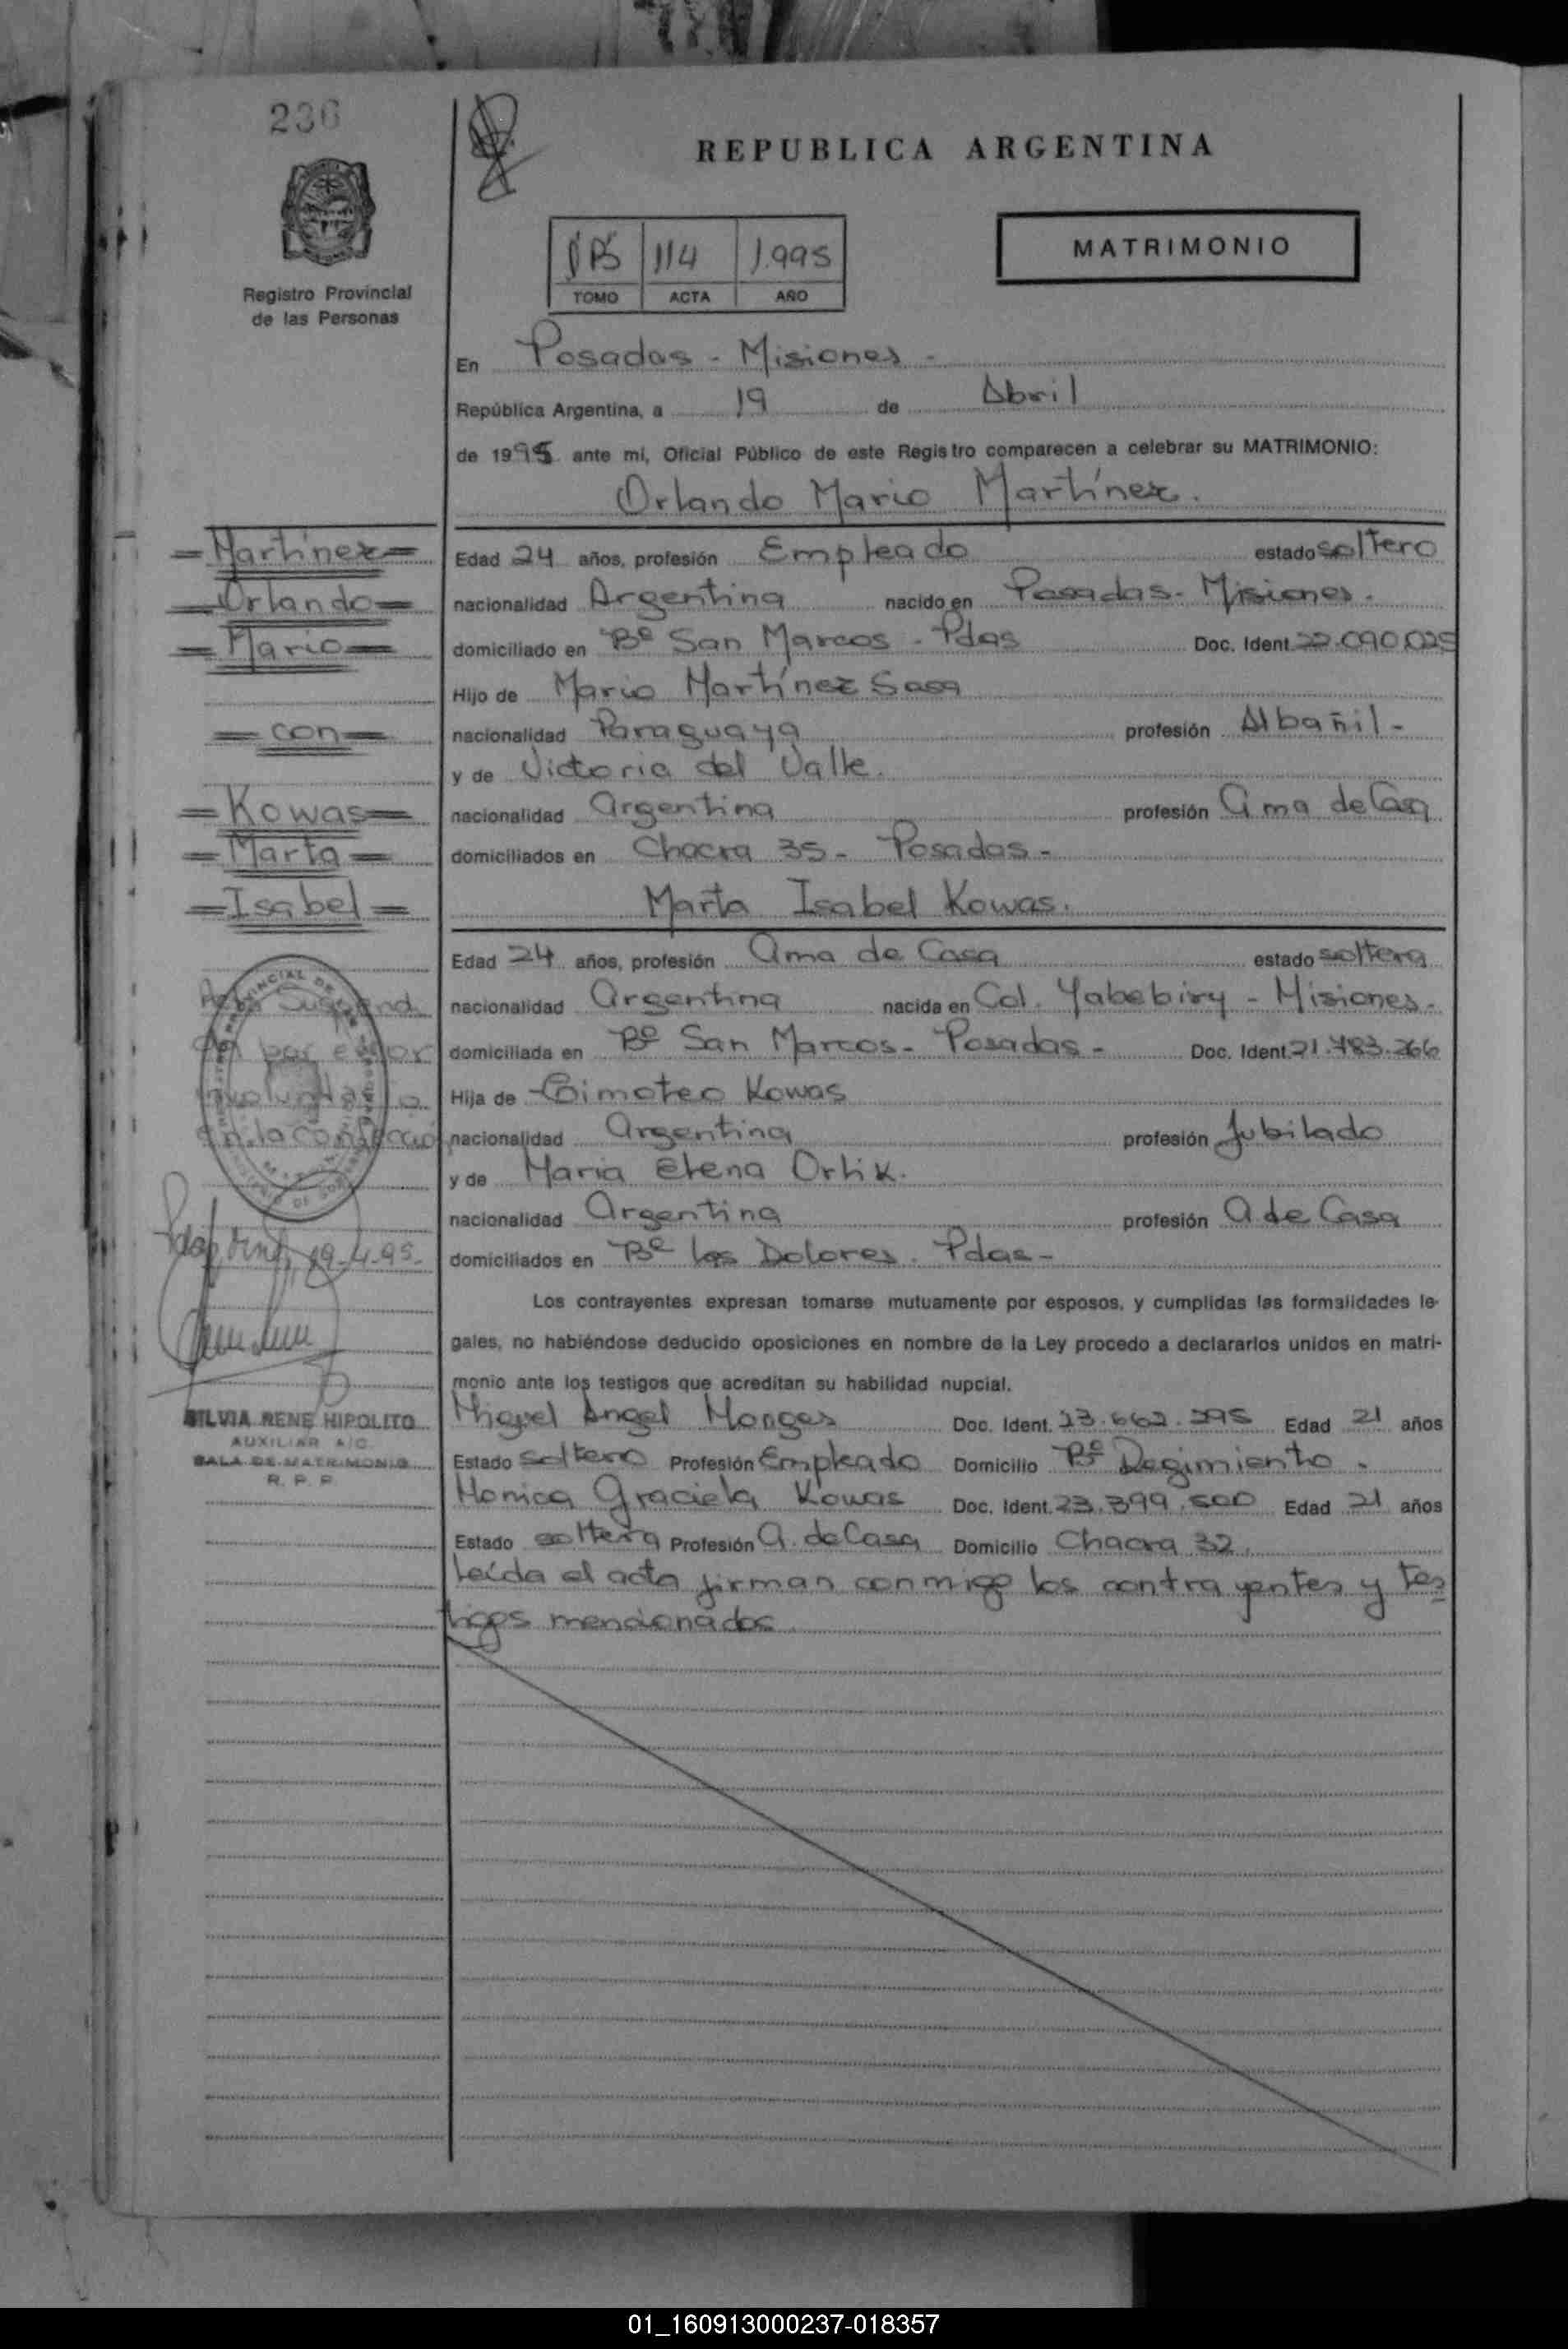 236
REPUBLICA ARGENTINA
114 1.995
TOMO ACTA AÑO
MATRIMONIO
Registro Provincial
de las Personas
En Posadas - Misiones -
República Argentina, a 19 de Abril
de 1995 ante mí, Oficial Público de este Registro comparecen a celebrar su MATRIMONIO:
Orlando Mario Martínez.
=Martínez=
=Orlando=
=Mario=
=con=
=Kowas=
=Marta=
=Isabel=
Edad 24 años, profesión Empleado estado soltero
nacionalidad Argentina nacido en Posadas- Misiones.
domiciliado en Bº San Marcos - Pdas Doc. Ident. 22.090.025
Hijo de Mario Martínez Sasa
nacionalidad Paraguaya profesión Albañil-
y de Victoria del Valle.
nacionalidad Argentina profesión Ama de Casa
domiciliados en Chacra 35- Posadas-
Marta Isabel Kowas.
Edad 24 años, profesión Ama de Casa estado soltera
nacionalidad Argentina nacida en Col. Yabebiry - Misiones-
domiciliada en Bº San Marcos- Posadas- Doc. Ident. 21.783.266
Hija de Timoteo Kowas
nacionalidad Argentina profesión Jubilado
y de Maria Elena Ortiz.
nacionalidad Argentina profesión A de Casa
domiciliados en Bº los Dolores. Pdas-
por error
involuntario
en la confeccio
19-4-95-
SILVIA RENE HIPOLITO
AUXILIAR A/C
SALA DE MATRIMONIO
R. P. P.
Los contrayentes expresan tomarse mutuamente por esposos, y cumplidas las formalidades le-
gales, no habiéndose deducido oposiciones en nombre de la Ley procedo a declararlos unidos en matri-
monio ante los testigos que acreditan su habilidad nupcial.
Miguel Angel Monges Doc. Ident. 23.662.295 Edad 21 años
Estado soltero Profesión Empleado Domicilio Bº Regimiento.
Monica Graciela Kowas Doc. Ident. 23.399.500 Edad 21 años
Estado soltera Profesión A. de Casa Domicilio Chacra 32.
Leída el acta firman conmigo los contrayentes y tes
tigos mencionados.
01_160913000237-018357